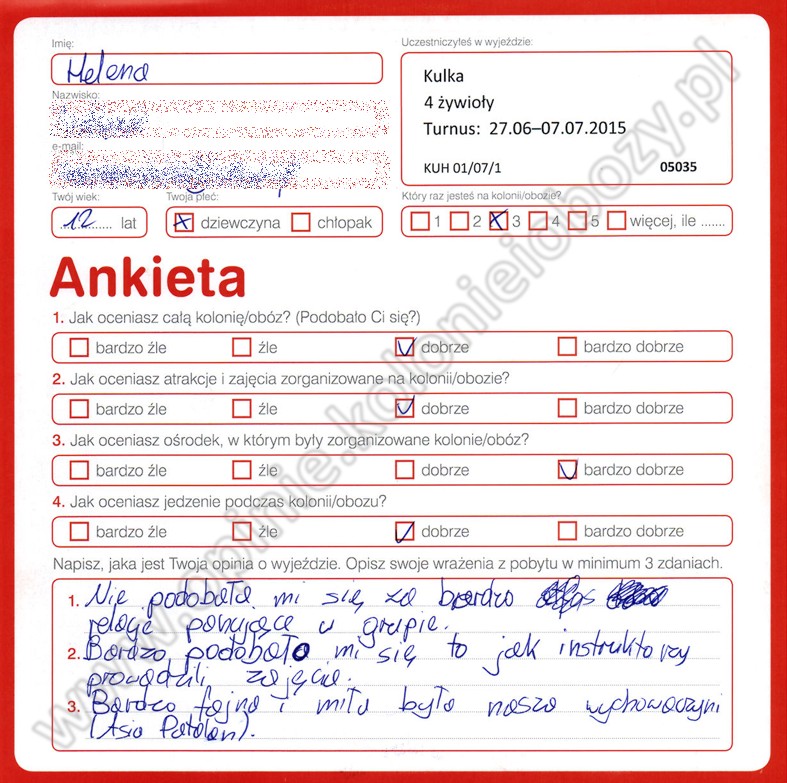 Imię:
Helena
Uczestniczyłeś w wyjeździe:
Kulka
4 żywioły
Turnus: 27.06–07.07.2015
KUH 01/07/1 05035
Nazwisko:
e-mail:
Twój wiek:
12 lat
Twoja płeć:
dziewczyna chłopak
Który raz jesteś na kolonii/obozie?
1 2 3 4 5 więcej, ile .......
Ankieta
1. Jak oceniasz całą kolonię/obóz? (Podobało Ci się?)
bardzo źle źle dobrze bardzo dobrze
2. Jak oceniasz atrakcje i zajęcia zorganizowane na kolonii/obozie?
bardzo źle źle dobrze bardzo dobrze
3. Jak oceniasz ośrodek, w którym były zorganizowane kolonie/obóz?
bardzo źle źle dobrze bardzo dobrze
4. Jak oceniasz jedzenie podczas kolonii/obozu?
bardzo źle źle dobrze bardzo dobrze
Napisz, jaka jest Twoja opinia o wyjeździe. Opisz swoje wrażenia z pobytu w minimum 3 zdaniach.
1. Nie podobała mi się za bardzo
relacje panujące w grupie.
2. Bardzo podobało mi się to jak instruktorzy
prowadzili zajęcia.
3. Bardzo fajna i miła była nasza wychowaczyni
(Asia Patalan).
www.opinie.kolonieiobozy.pl